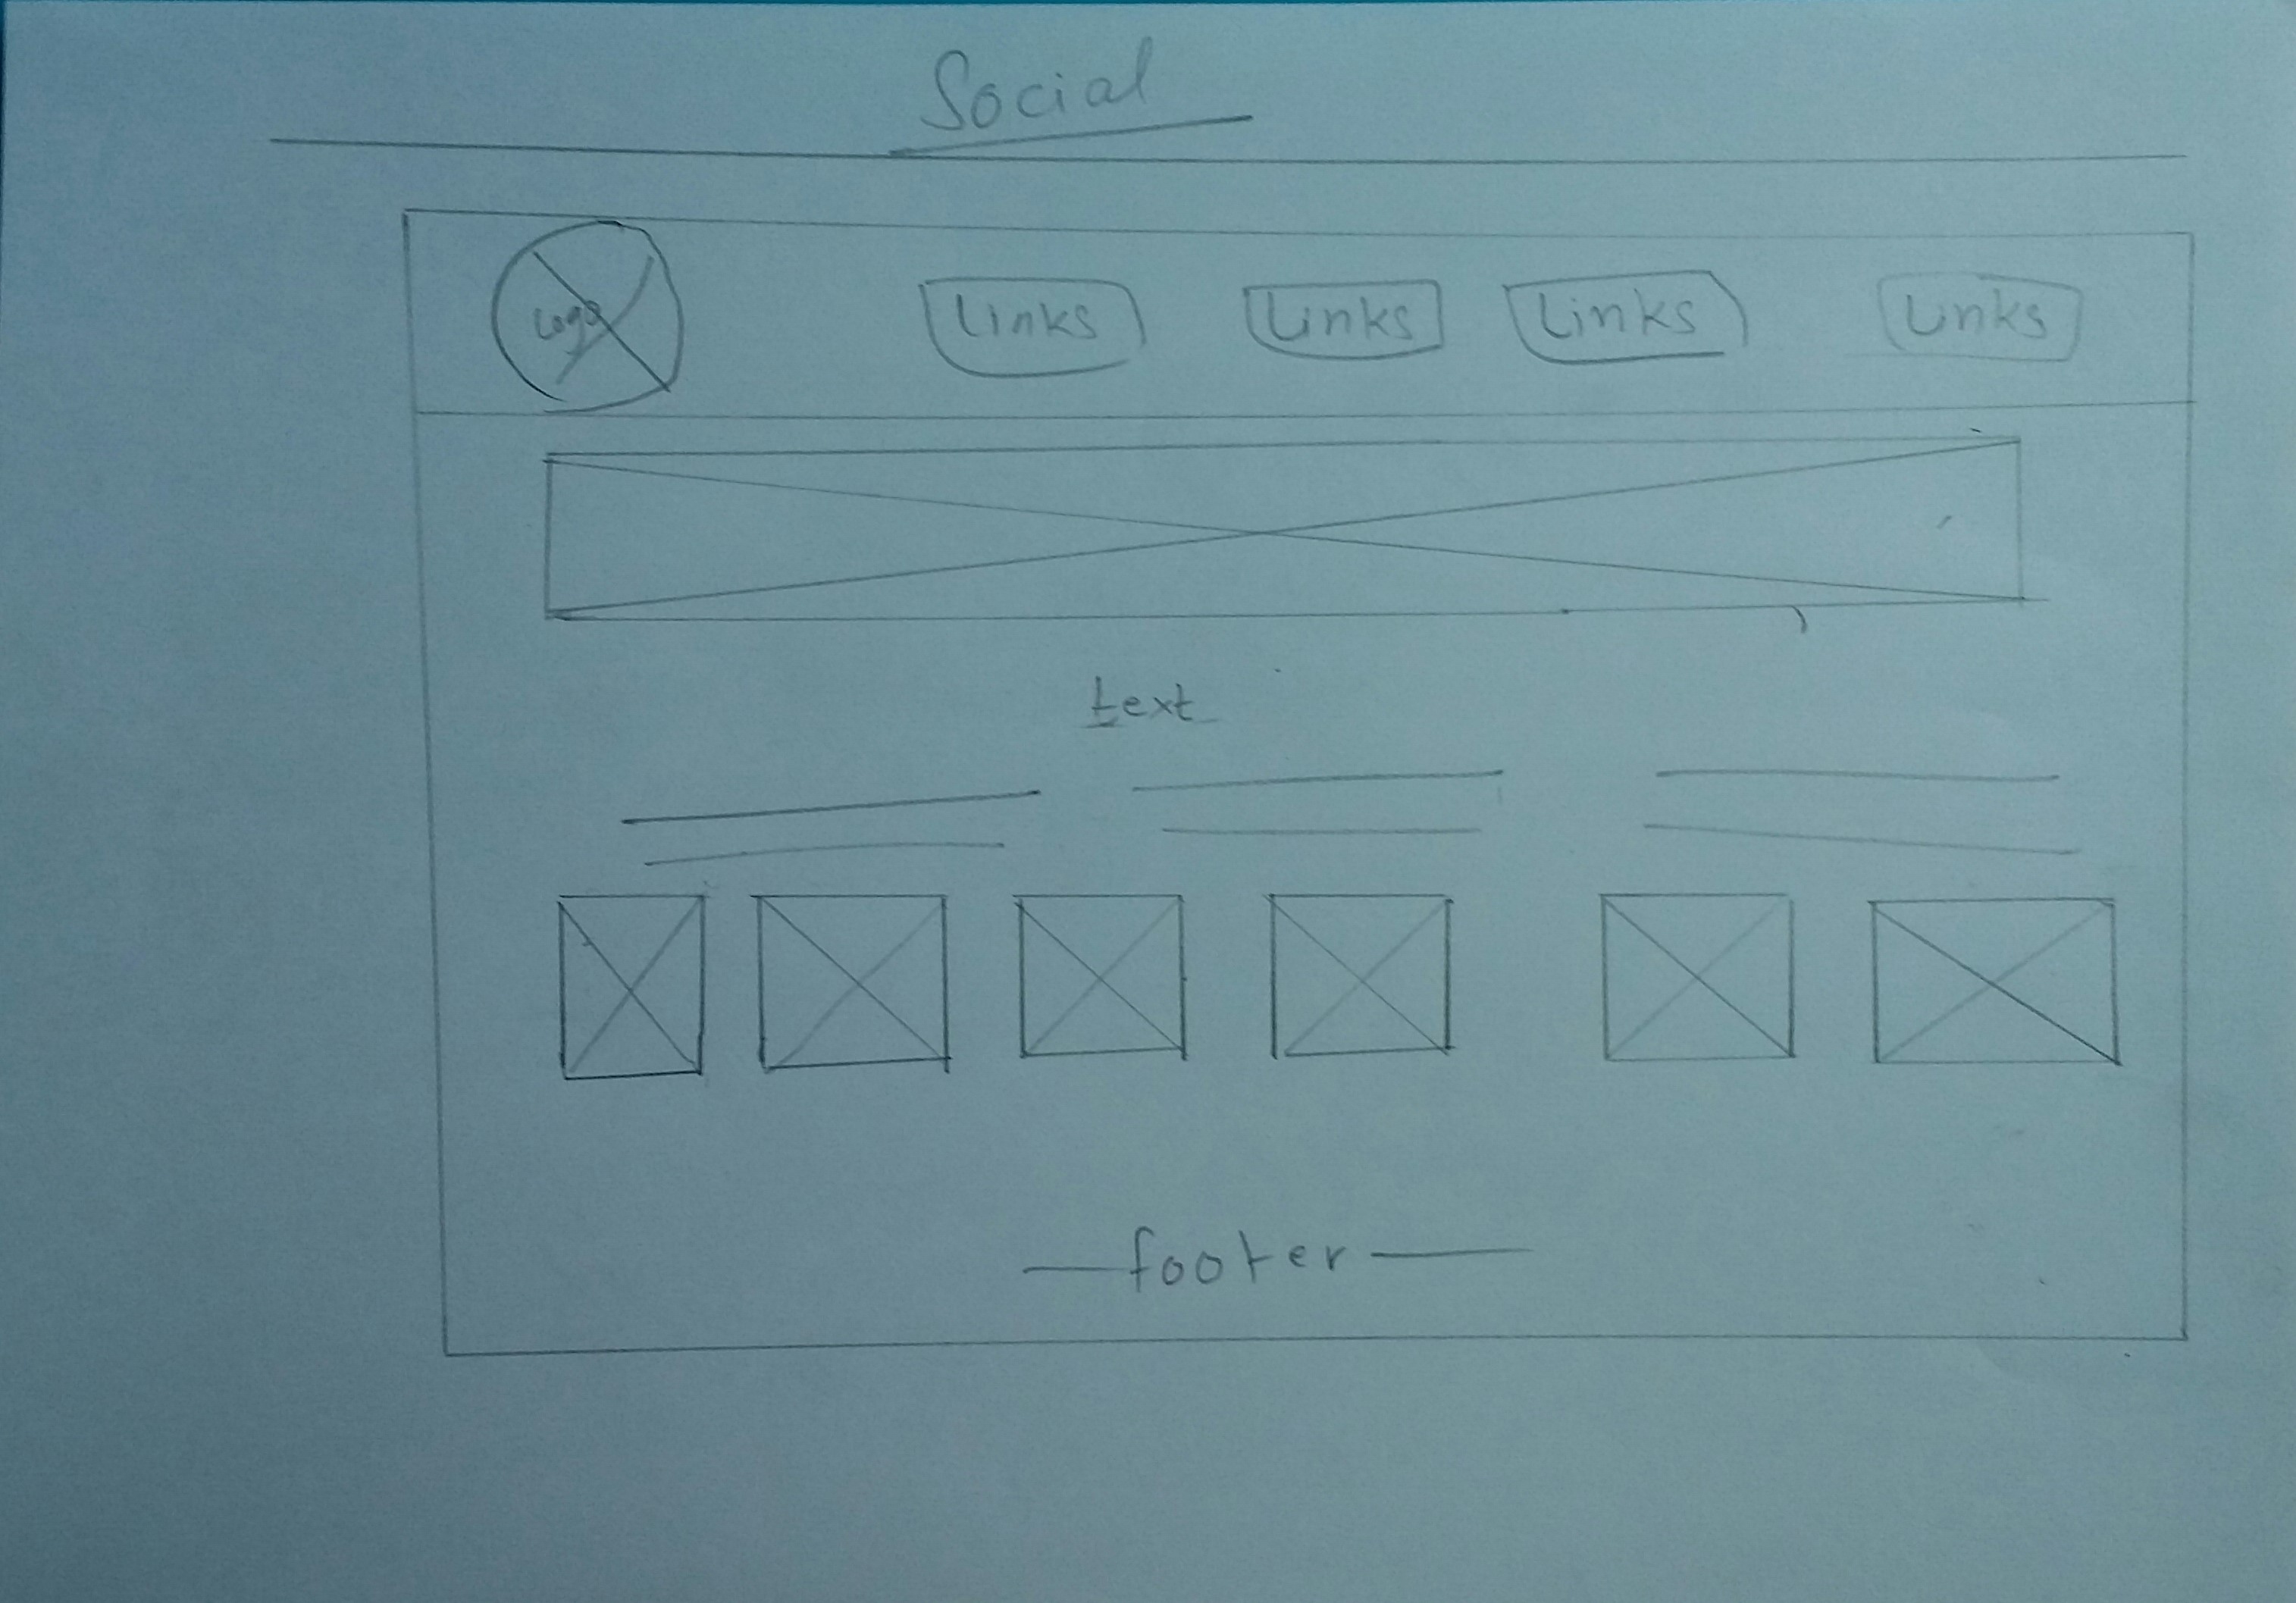 Social
Logo Links Links Links Links
text
footer